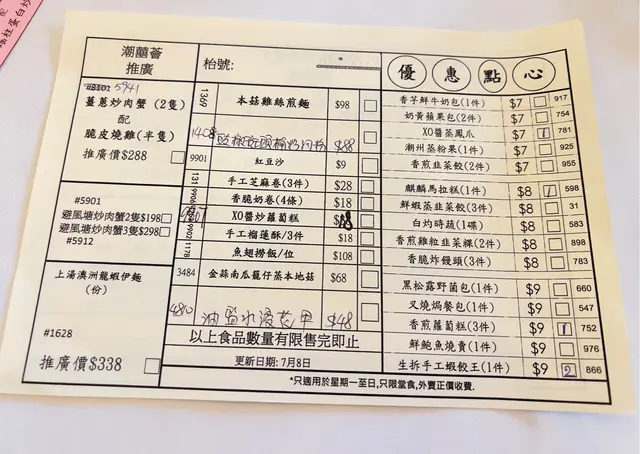 潮囍薈
推廣
枱號:
優惠點心
#8101 5941
薑蔥炒肉蟹 (2隻)
配
脆皮燒雞(半隻)
推廣價$288
#5901
避風塘炒肉蟹2隻$198
避風塘炒肉蟹3隻$298
#5912
上湯澳洲龍蝦伊麵
(份)
#1628
推廣價$338
1369 本菇雞絲煎麵 $98
1408 $88
9901 紅豆沙 $9
131 手工芝麻卷(3件) $28
9906 香脆奶卷(4條) $18
XO醬炒蘿蔔糕
9902 手工榴蓮酥/3件 $18
1178 魚翅撈飯/位 $108
3484 金蒜南瓜籠仔蒸本地菇 $68
4810 油鹽水浸花甲 $48
以上食品數量有限售完即止
更新日期: 7月8日
香芋鮮牛奶包(1件) $7 917
奶黃蘋果包(2件) $7 754
XO醬蒸鳳爪 $7 1 781
潮州蒸粉果(1件) $7 925
香煎韭菜餃(2件) $7 955
麒麟馬拉糕(1件) $8 1 598
鮮蝦蒸韭菜餃(3件) $8 31
白灼時蔬(1碟) $8 583
香煎雞粒韭菜粿(2件) $8 898
香脆炸饅頭(3件) $8 783
黑松露野菌包(1件) $9 660
叉燒焗餐包(1件) $9 547
香煎蘿蔔糕(3件) $9 1 752
鮮鮑魚燒賣(1件) $9 976
生拆手工蝦餃王(1件) $9 2 866
*只適用於星期一至日,只限堂食,外賣正價收費.